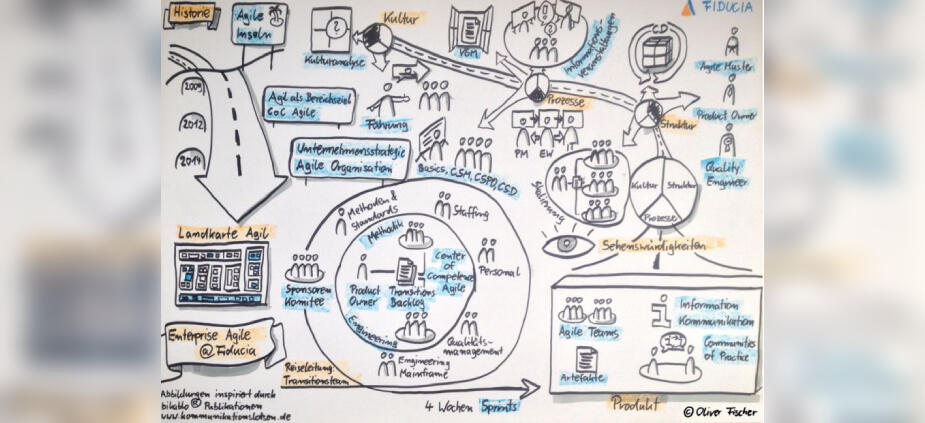 Historie
Agile
Inseln
Kultur
FIDUCIA
Kulturanalyse
VGM
Informations
veranstaltungen
CD
Agile Master
2009
2012
2014
Agil als Bereichsziel
CoC Agile
Führung
Prozesse
Struktur
Product Owner
Unternehmensstrategie
Agile Organisation
Basics, CSM, CSPO, CSD
PM EW IT
Quality
Engineer
Skalierung
Kultur Struktur
Prozesse
Methoden &
Standards
Staffing
Sehenswürdigkeiten
Landkarte Agil
Methodik
Center
of
Competence
Agile
Personal
Sponsoren
Komitee
Product
Owner
Transitions
Backlog
Engineering
Qualitäts-
management
Engineering
Mainframe
Information
Kommunikation
Agile Teams
Communities
of Practice
Artefakte
Enterprise Agile
@ Fiducia
Reiseleitung:
Transitionsteam
4 Wochen Sprints
Produkt
Abbildungen inspiriert durch
bikablo® Publikationen
www.kommunikationslotsen.de
© Oliver Fischer